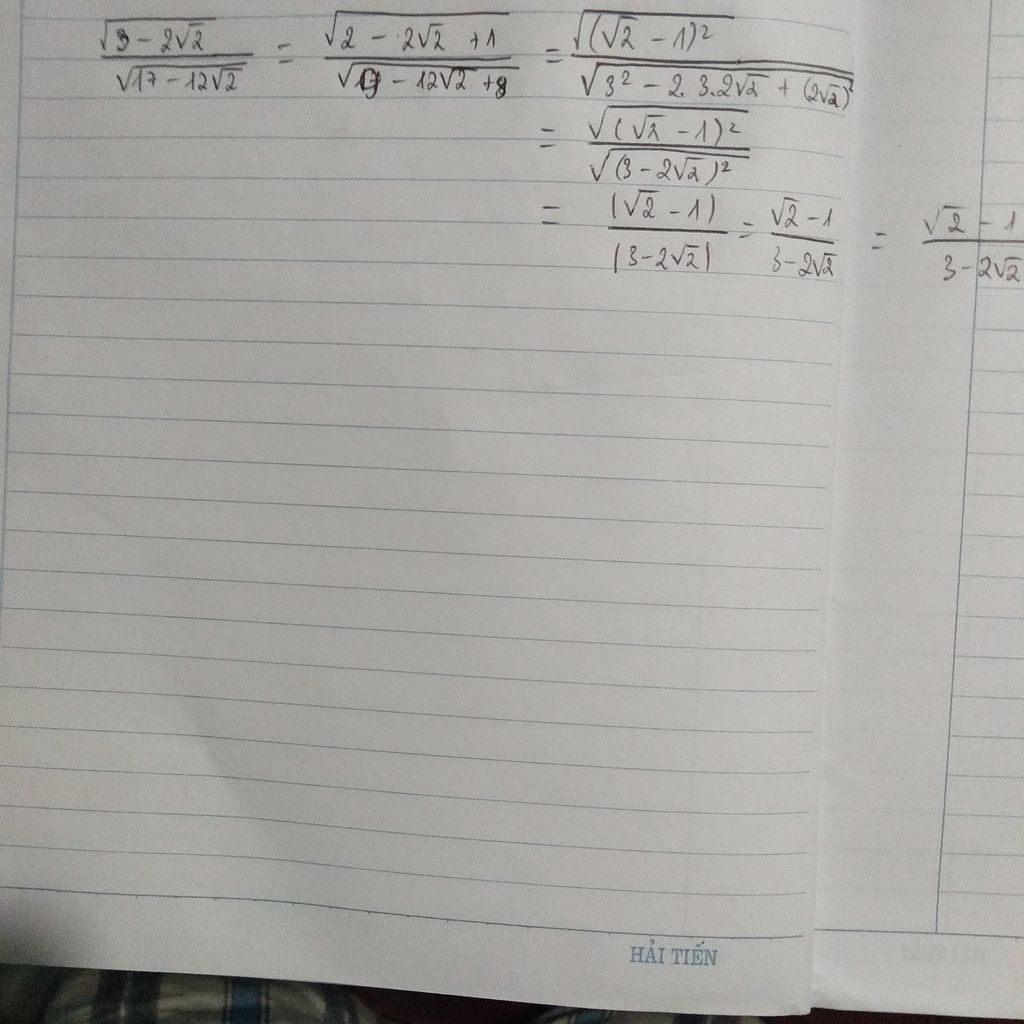 √(3 - 2√2) / √(17 - 12√2) = √(2 - 2√2 + 1) / √(9 - 12√2 + 8) = √((√2 - 1)²) / √(3² - 2.3.2√2 + (2√2)²)
= √((√2 - 1)²) / √((3 - 2√2)²)
= |√2 - 1| / |3 - 2√2| = (√2 - 1) / (3 - 2√2) = (√2 - 1) / (3 - 2√2)
HẢI TIẾN